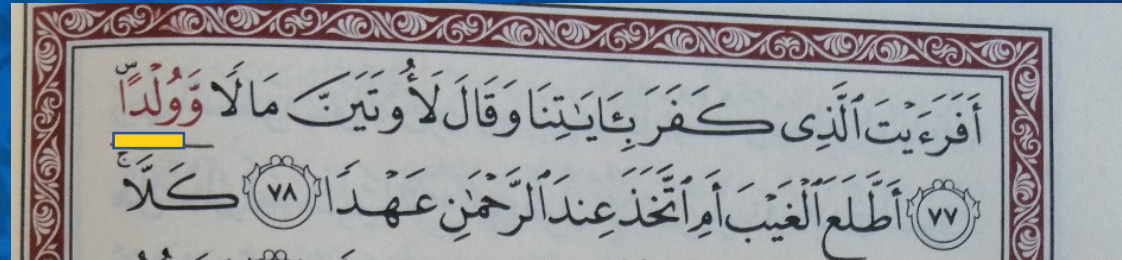 أَفَرَءَيْتَ ٱلَّذِى كَفَرَ بِـَٔايَـٰتِنَا وَقَالَ لَأُوتَيَنَّ مَالًا وَوُلْدًا
٧٧ أَطَّلَعَ ٱلْغَيْبَ أَمِ ٱتَّخَذَ عِندَ ٱلرَّحْمَـٰنِ عَهْدًا ٧٨ كَلَّا ۚ